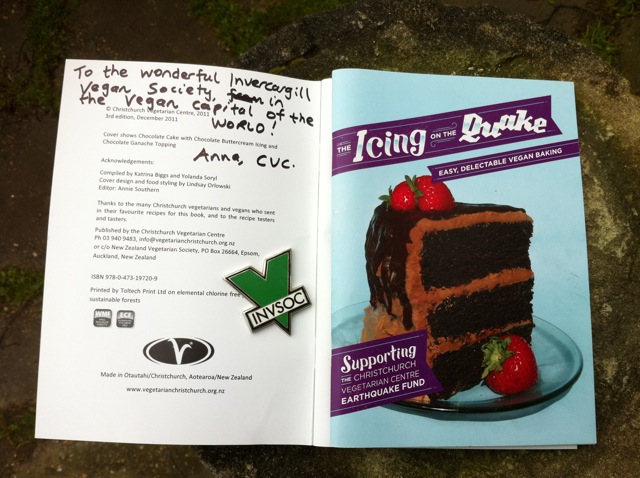 To the wonderful Invercargill
Vegan Society, from in
the vegan capital of the
WORLD!
© Christchurch Vegetarian Centre, 2011
3rd edition, December 2011
Cover shows Chocolate Cake with Chocolate Buttercream Icing and
Chocolate Ganache Topping
Anna, CVC.
Acknowledgements:
Compiled by Katrina Biggs and Yolanda Soryl
Cover design and food styling by Lindsay Orlowski
Editor: Annie Southern
Thanks to the many Christchurch vegetarians and vegans who sent
in their favourite recipes for this book, and to the recipe testers
and tasters.
Published by the Christchurch Vegetarian Centre
Ph 03 940 9483, info@vegetarianchristchurch.org.nz
or c/o New Zealand Vegetarian Society, PO Box 26664, Epsom,
Auckland, New Zealand
ISBN 978-0-473-19720-9
Printed by Toltech Print Ltd on elemental chlorine free
sustainable forests
WMF ECF
V
Made in Otautahi/Christchurch, Aotearoa/New Zealand
www.vegetarianchristchurch.org.nz
INVSOC
THE Icing ON THE Quake
EASY, DELECTABLE VEGAN BAKING
Supporting
THE CHRISTCHURCH
VEGETARIAN CENTRE
EARTHQUAKE FUND